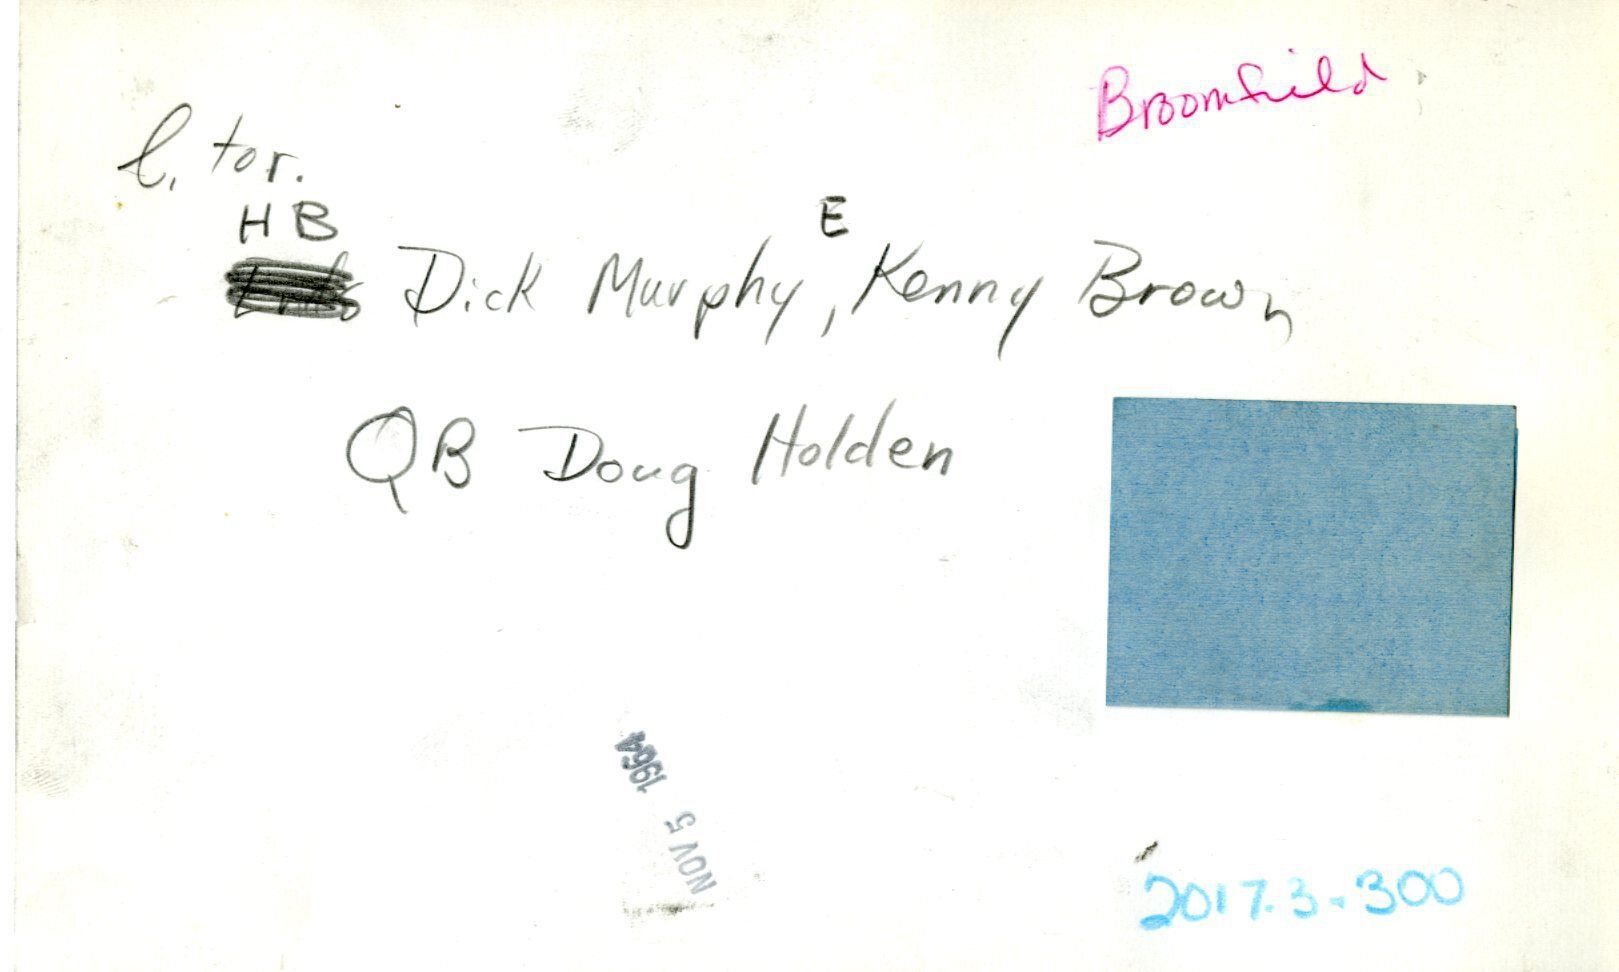 Broomfield
l. to r.
HB E
Dick Murphy, Kenny Brown
QB Doug Holden
NOV 5 1964
2017.3.300